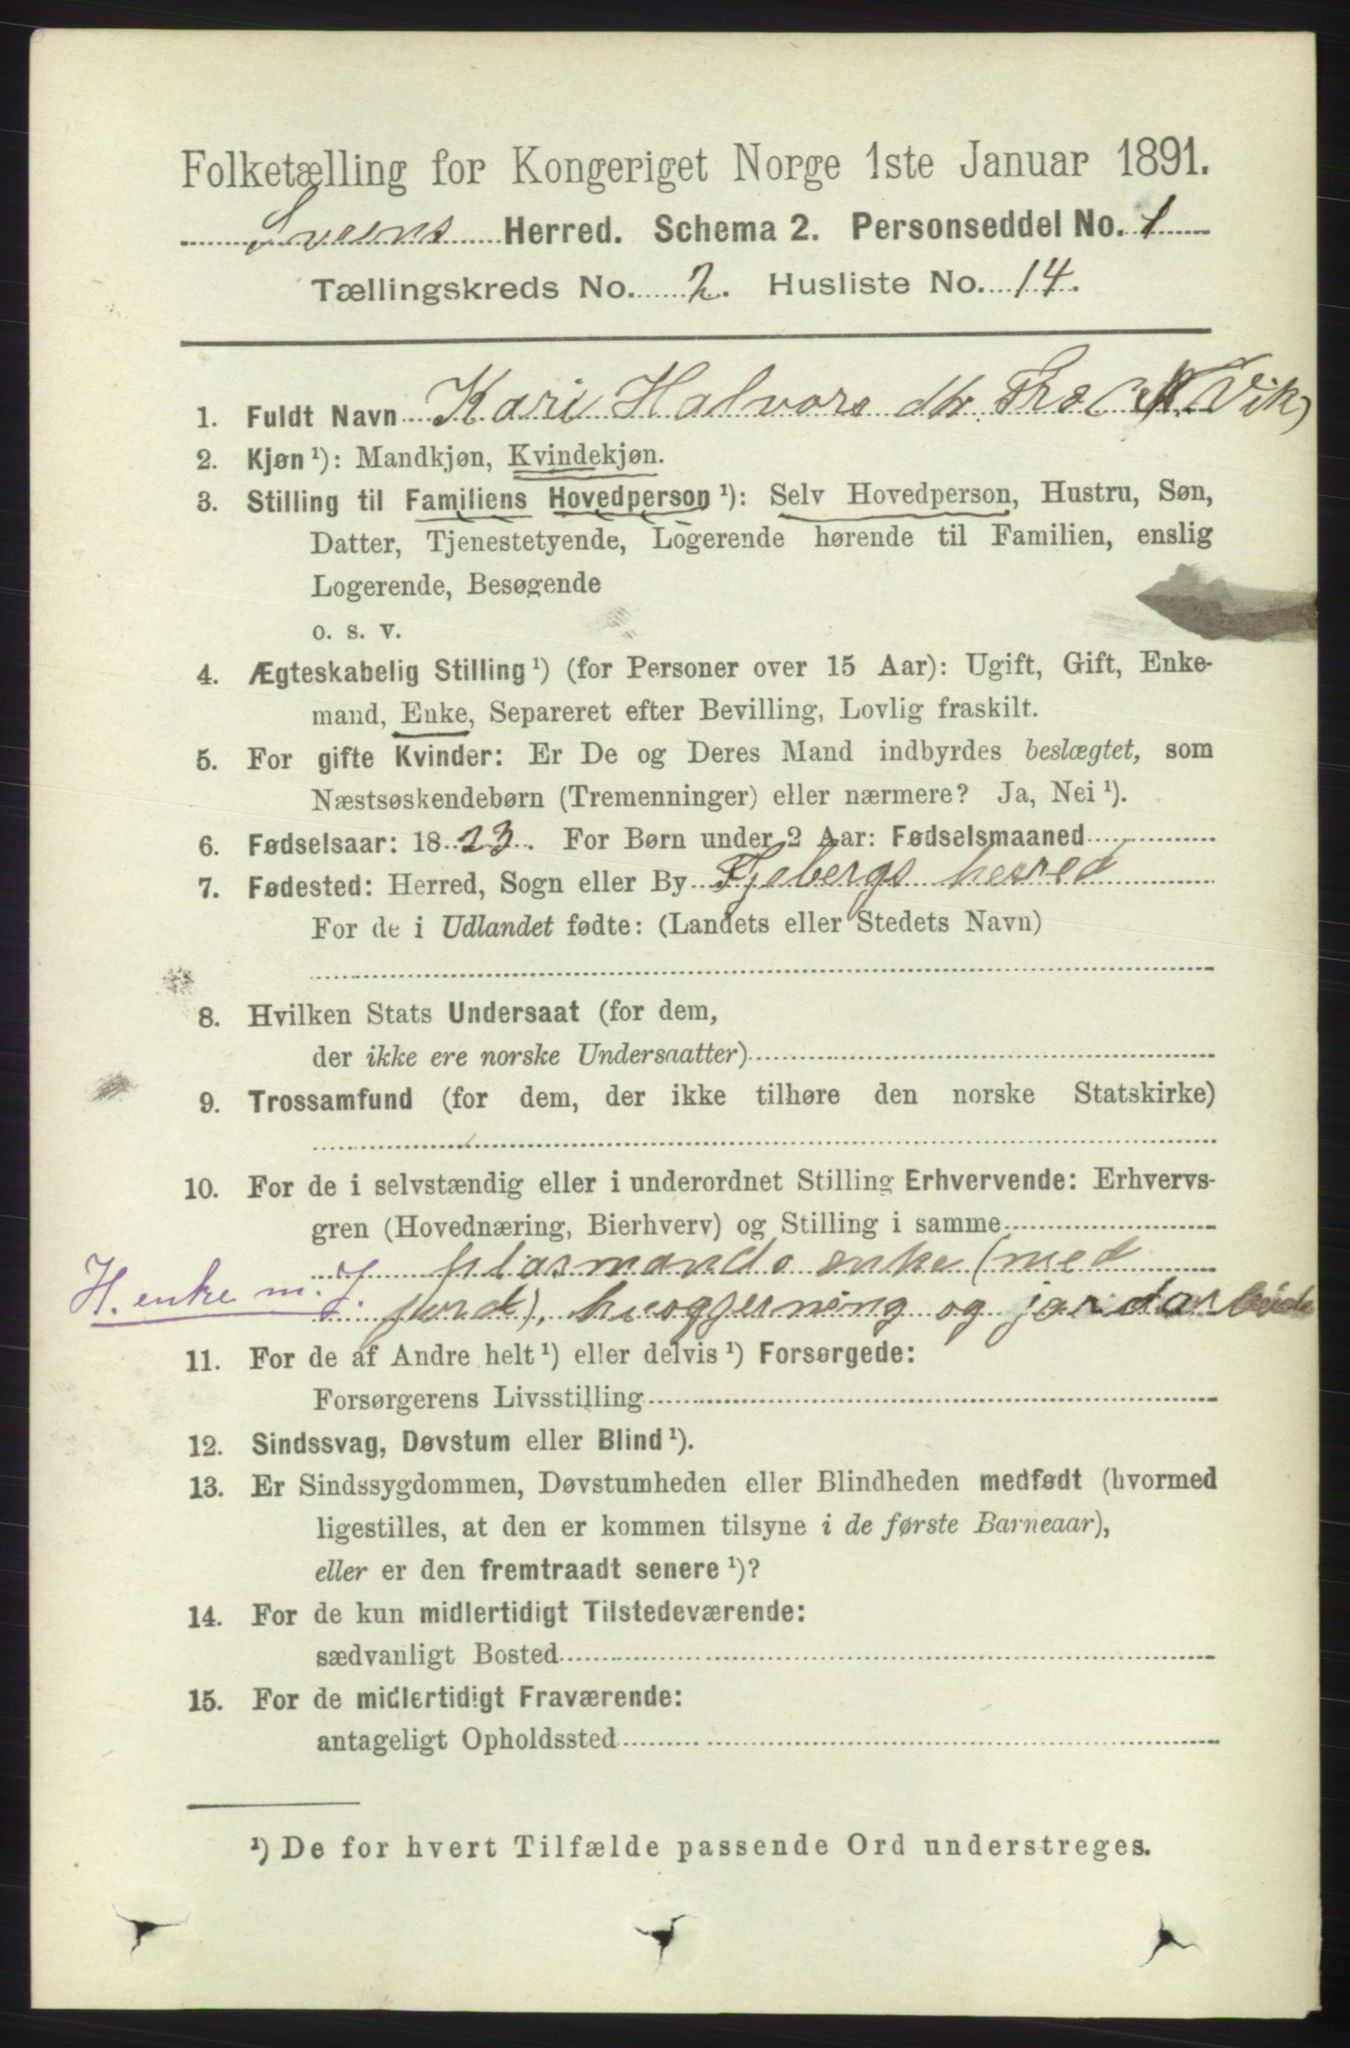 Folketælling for Kongeriget Norge 1ste Januar 1891.
Sveens Herred. Schema 2. Personseddel No. 1
Tællingskreds No. 2. Husliste No. 14.
1. Fuldt Navn Kari Halvors dtr. Vik)
2. Kjøn ¹): Mandkjøn, Kvindekjøn.
3. Stilling til Familiens Hovedperson ¹): Selv Hovedperson, Hustru, Søn,
Datter, Tjenestetyende, Logerende hørende til Familien, enslig
Logerende, Besøgende
o. s. v.
4. Ægteskabelig Stilling ¹) (for Personer over 15 Aar): Ugift, Gift, Enke-
mand, Enke, Separeret efter Bevilling, Lovlig fraskilt.
5. For gifte Kvinder: Er De og Deres Mand indbyrdes beslægtet, som
Næstsøskendebørn (Tremenninger) eller nærmere? Ja, Nei ¹).
6. Fødselsaar: 1823. For Børn under 2 Aar: Fødselsmaaned
7. Fødested: Herred, Sogn eller By Fjebergs herred
For de i Udlandet fødte: (Landets eller Stedets Navn)
8. Hvilken Stats Undersaat (for dem,
der ikke ere norske Undersaatter)
9. Trossamfund (for dem, der ikke tilhøre den norske Statskirke)
10. For de i selvstændig eller i underordnet Stilling Erhvervende: Erhvervs-
gren (Hovednæring, Bierhverv) og Stilling i samme
plasmands enke (med
H. enke m. J. jord), husgjerning og jordarbeide
11. For de af Andre helt ¹) eller delvis ¹) Forsørgede:
Forsørgerens Livsstilling
12. Sindssvag, Døvstum eller Blind ¹).
13. Er Sindssygdommen, Døvstumheden eller Blindheden medfødt (hvormed
ligestilles, at den er kommen tilsyne i de første Barneaar),
eller er den fremtraadt senere ¹)?
14. For de kun midlertidigt Tilstedeværende:
sædvanligt Bosted
15. For de midlertidigt Fraværende:
antageligt Opholdssted
¹) De for hvert Tilfælde passende Ord understreges.